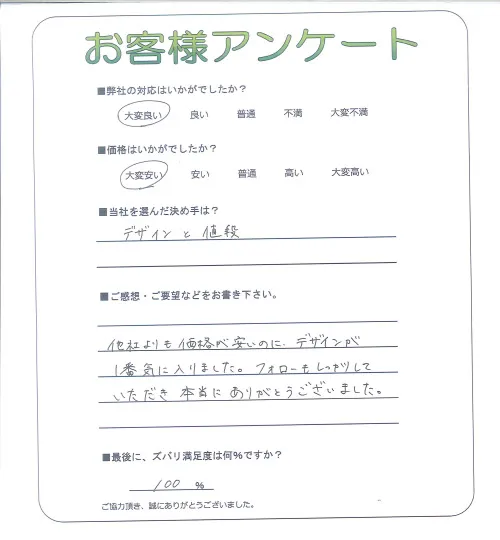 お客様アンケート
■弊社の対応はいかがでしたか？
大変良い 良い 普通 不満 大変不満
■価格はいかがでしたか？
大変安い 安い 普通 高い 大変高い
■当社を選んだ決め手は？
デザインと値段
■ご感想・ご要望などをお書き下さい。
他社よりも価格が安いのに、デザインが
1番気に入りました。フォローもしっかりして
いただき本当にありがとうございました。
■最後に、ズバリ満足度は何％ですか？
100 %
ご協力頂き、誠にありがとうございました。